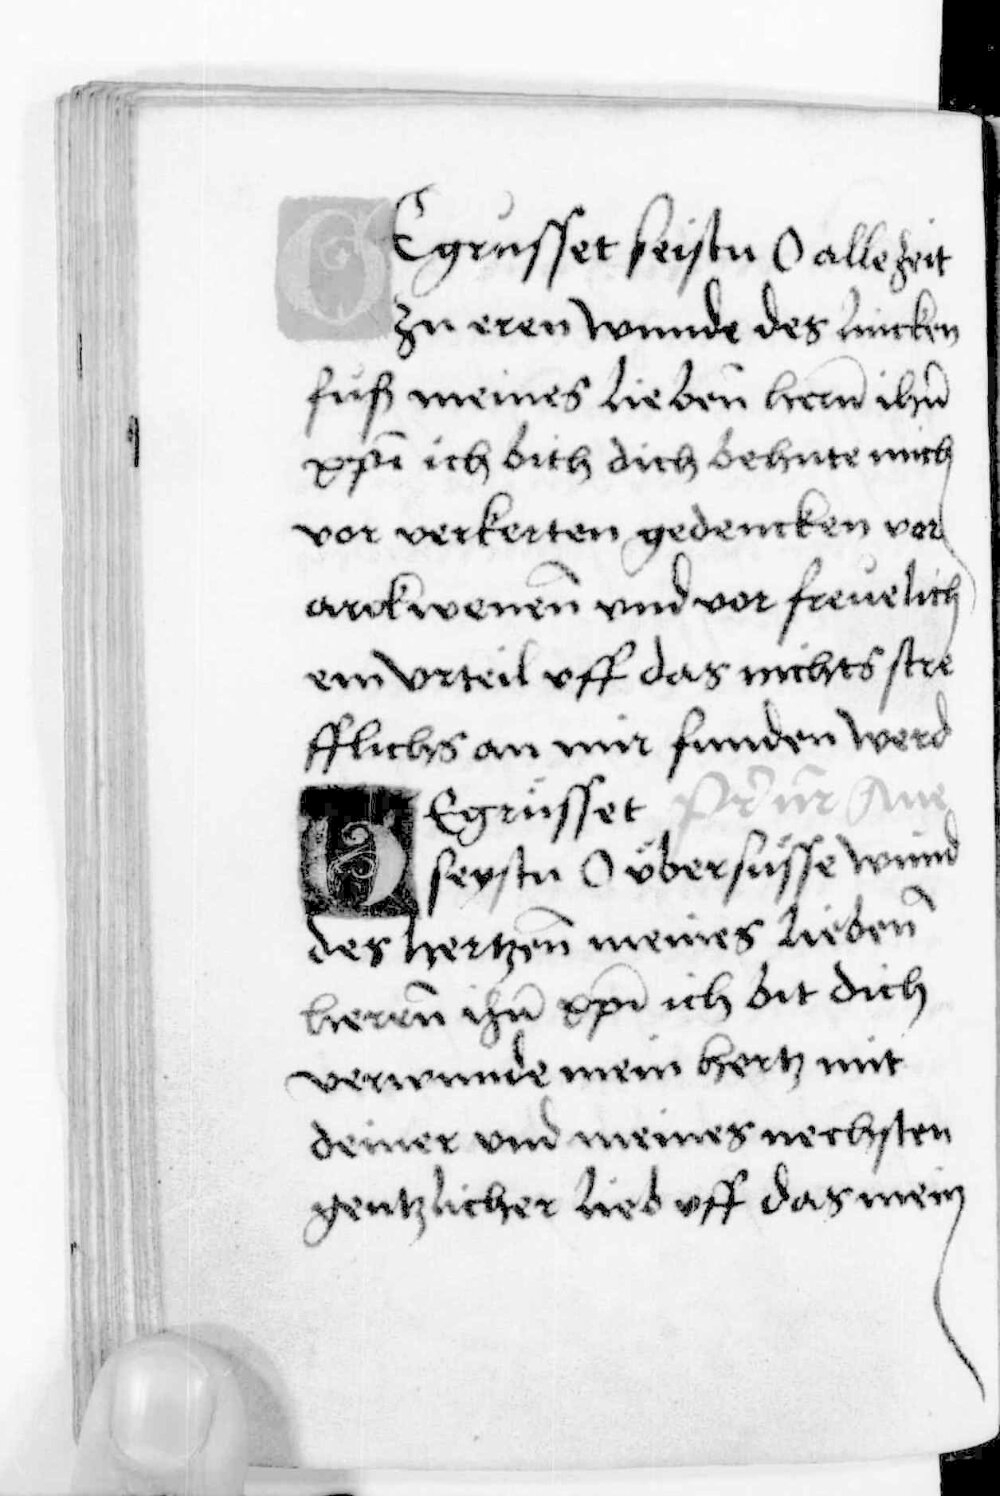 GEgrusset seistu O alle zeit
zu eren wunde des lincken
fuß meines lieben̄ herrn̄ ihū
xpī ich bith dich behute mich
vor verkerten gedencken vor
arckwenen̄ vnd vor freuelich
em vrteil vff das nichts stre
fflichs an mir funden werd
GEgrüsset Pr̄ nr̄ Aue
seystu O übersüsse wund
des hertzen̄ meines lieben̄
herren̄ ihū xpī ich bit dich
verwunde mein hertz mit
deiner vnd meines nechsten
gentzlicher lieb vff das mein